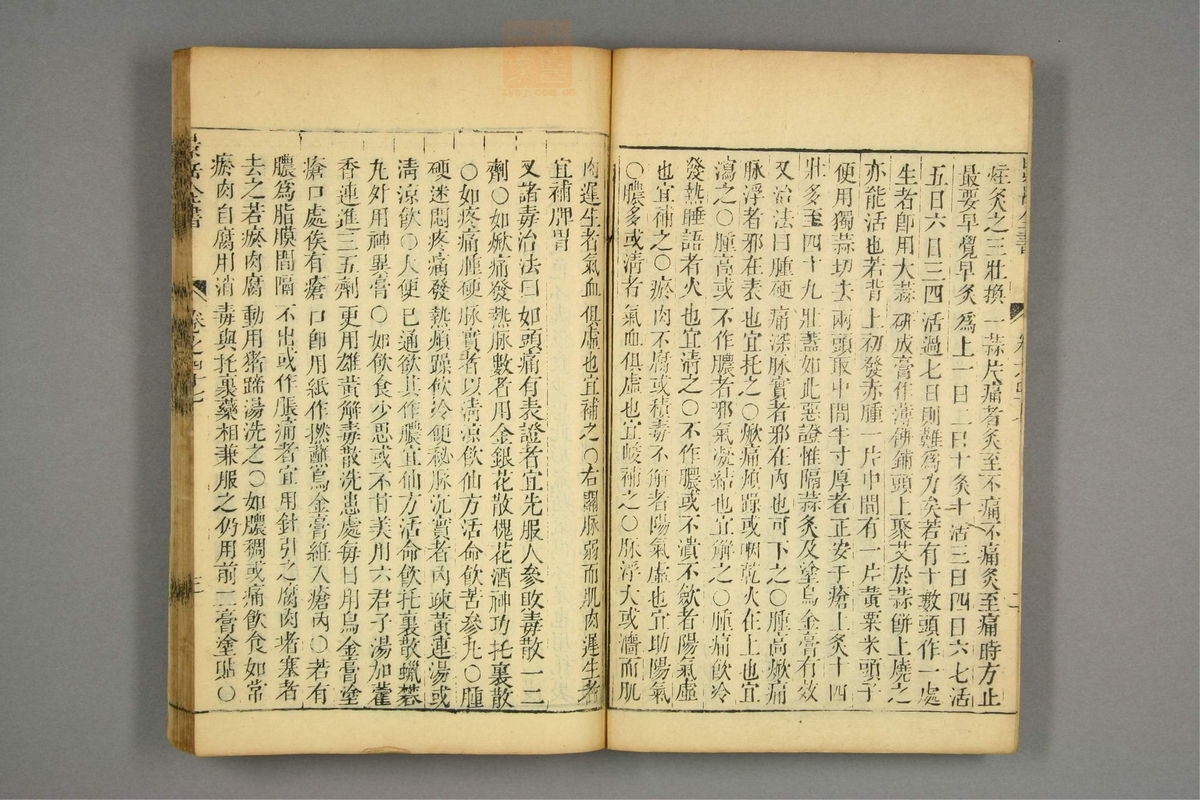 痓灸之三壯換一蒜片痛者灸至不痛不痛灸至痛時方止
最要早覺早灸爲上一日二日十灸十活三日四日六七活
五日六日三四活過七日則難爲力矣若有十數頭作一處
生者卽用大蒜研成膏作薄餅鋪頭上聚艾於蒜餅上燒之
亦能活也若背上初發赤腫一片中間有一片黃粟米頭子
便用獨蒜切去兩頭取中間半寸厚者正安于瘡上灸十四
壯多至四十九壯蓋如此惡證惟隔蒜灸及塗烏金膏有效
又治法曰腫硬痛深脉實者邪在內也可下之〇腫高焮痛
脉浮者邪在表也宜托之〇焮痛煩躁或咽乾火在上也宜
瀉之〇腫高或不作膿者邪氣凝結也宜解之〇腫痛飲冷
發熱睡語者火也宜清之〇不作膿或不潰不斂者陽氣虛
也宜補之〇瘀肉不腐或積毒不解者陽氣虛也宜助陽氣
〇膿多或清者氣血俱虛也宜峻補之〇脉浮大或濇而肌
肉遲生者氣血俱虛也宜補之〇右關脉弱而肌肉遲生者
宜補脾胃
又諸毒治法曰如頭痛有表證者宜先服人參敗毒散一二
劑〇如焮痛發熱脉數者用金銀花散槐花酒神功托裏散
〇如疼痛腫硬脉實者以清凉飲仙方活命飲苦參丸〇腫
硬迷悶疼痛發熱煩躁飲冷便秘脉沉實者內疎黃連湯或
清凉飲〇大便已通欲其作膿宜仙方活命飲托裏散蠟礬
丸外用神異膏〇如飲食少思或不甘美用六君子湯加藿
香連進三五劑更用雄黃解毒散洗患處每日用烏金膏塗
瘡口處俟有瘡口卽用紙作撚蘸烏金膏維入瘡內〇若有
膿爲脂膜間隔不出或作脹痛者宜用針引之腐肉者塞者
去之若瘀肉腐動用猪蹄湯洗之〇如膿稠或痛飲食如常
瘀肉自腐用消毒與托裏藥相兼服之仍用前二膏塗貼〇
景岳全書
卷之四十七
三